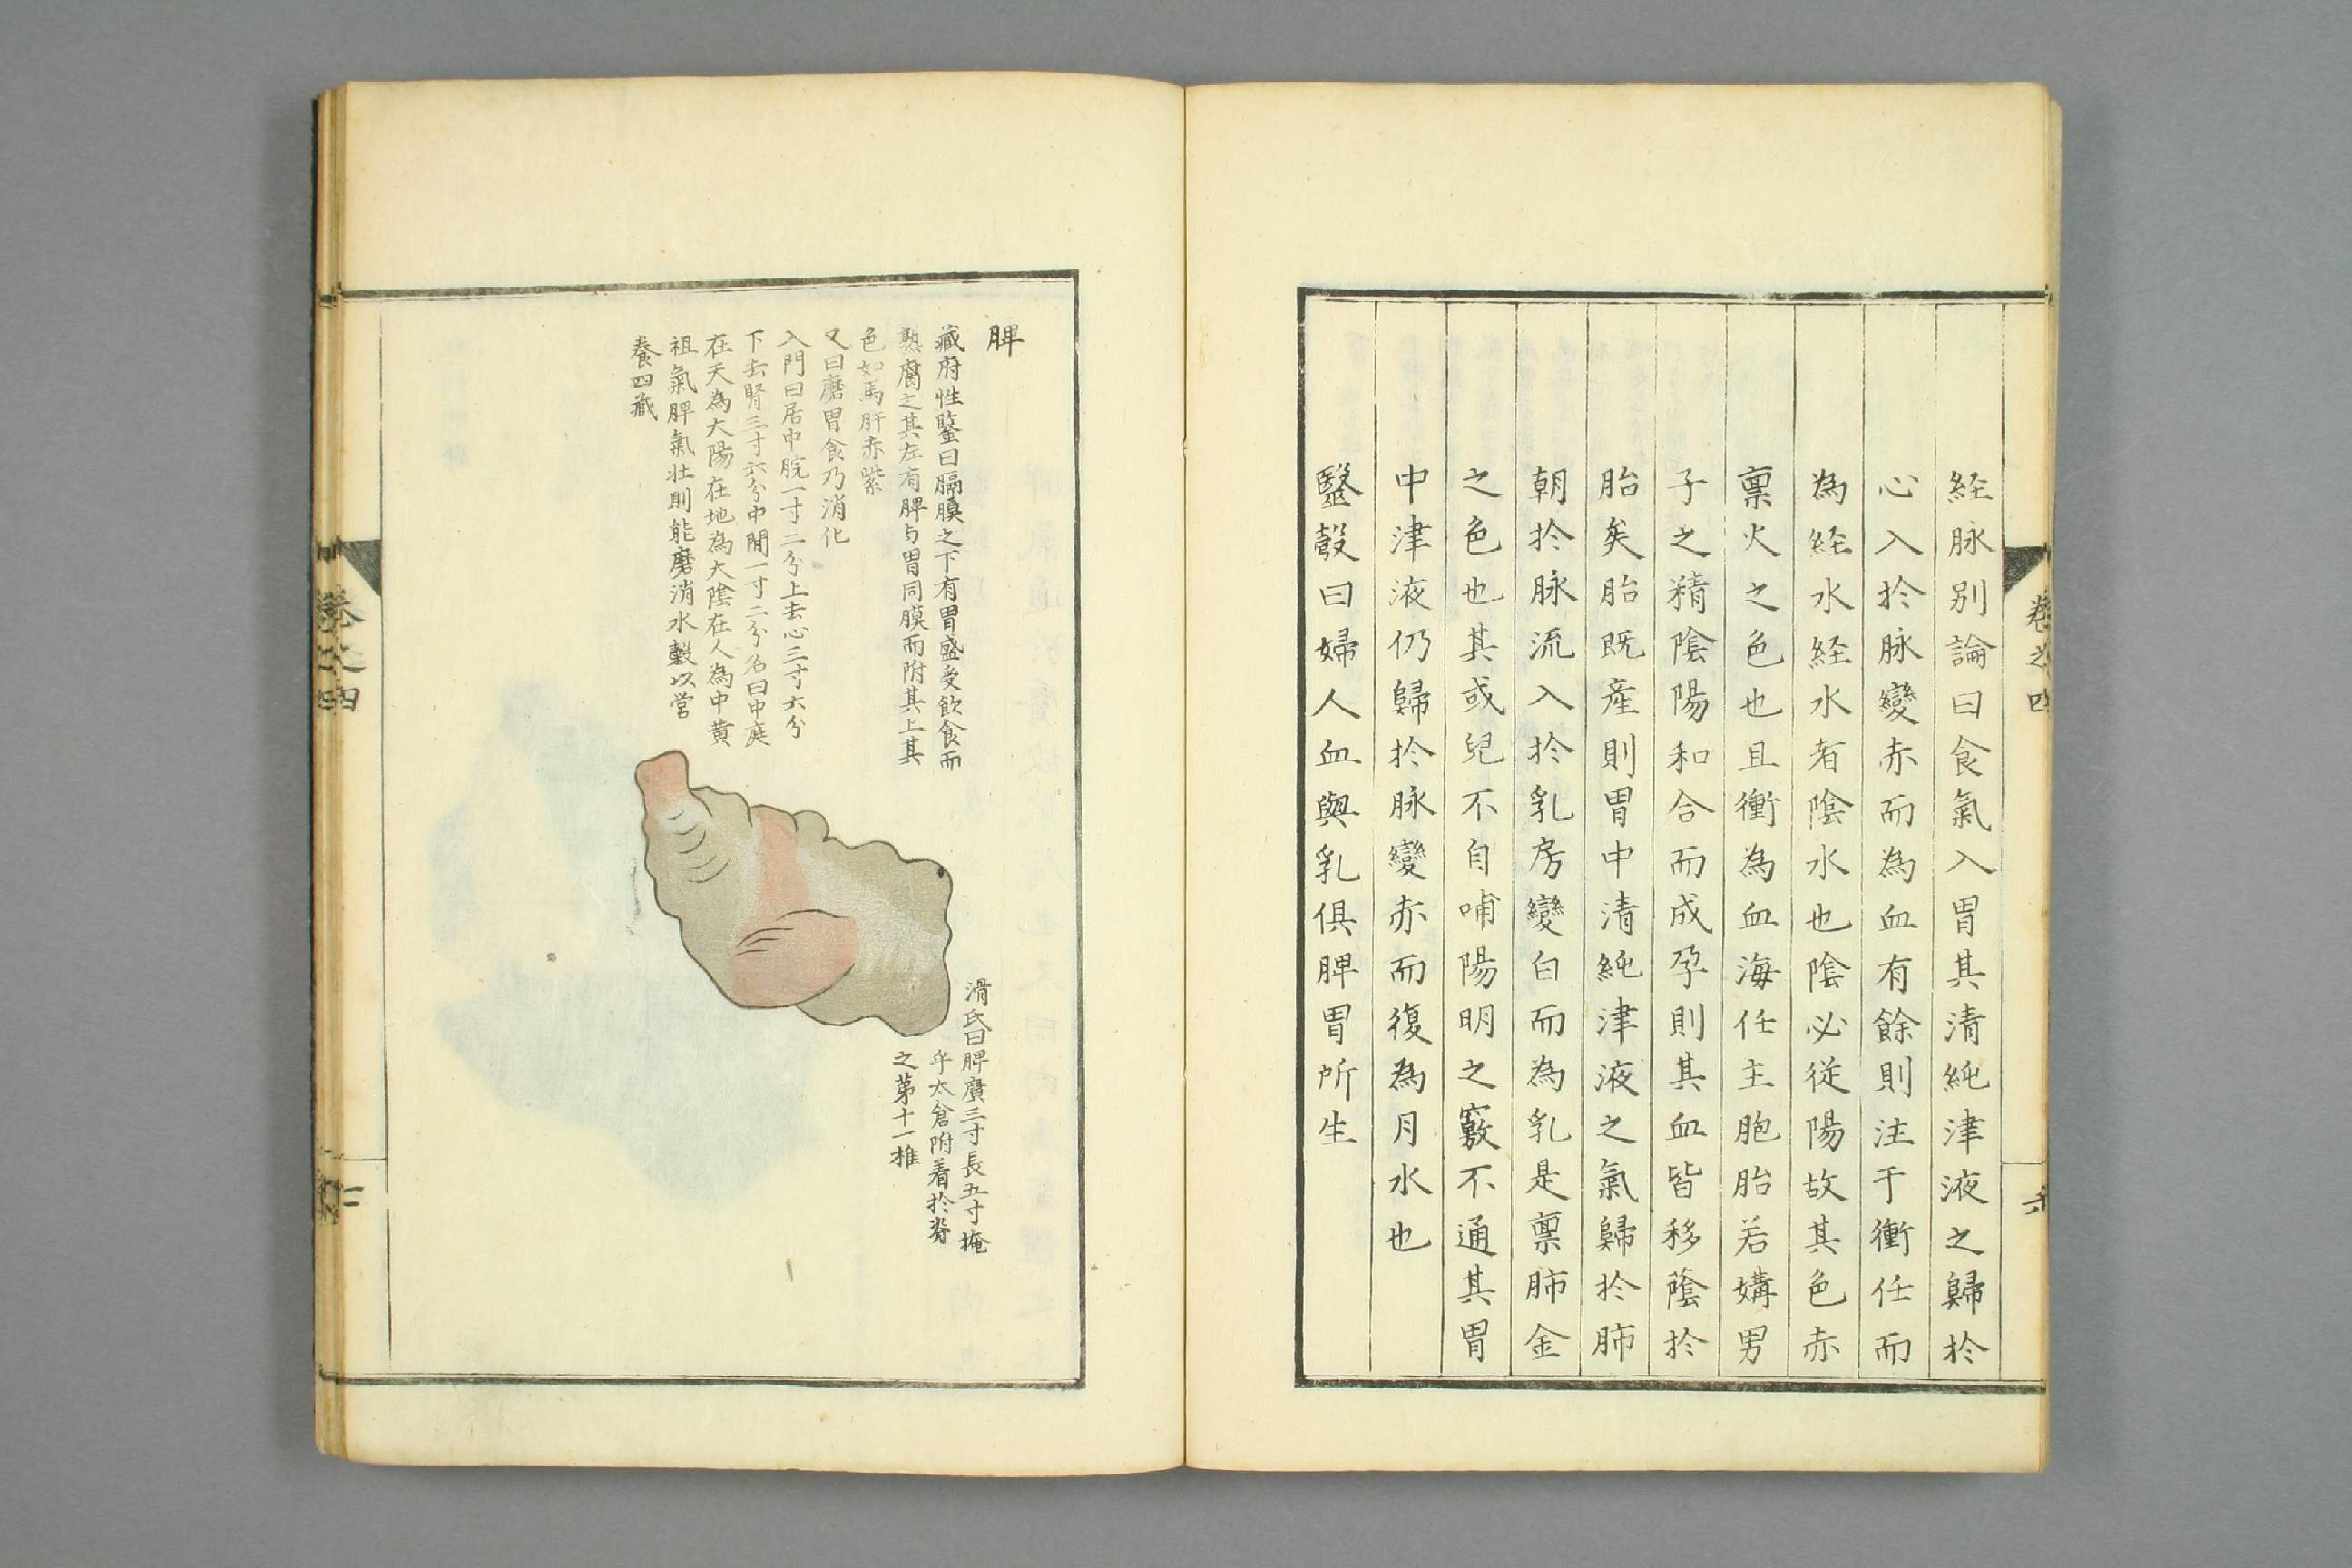 経脉别論曰食氣入胃其清純津液之歸於
心入於脉變赤而為血有餘則注于衝任而
為経水経水者陰水也陰必從陽故其色赤
禀火之色也且衝為血海任主胞胎若媾男
子之精陰陽和合而成孕則其血皆移蔭於
胎矣胎既産則胃中清純津液之氣歸於肺
朝於脉流入於乳房變白而為乳是禀肺金
之色也其或兒不自哺陽明之竅不通其胃
中津液仍歸於脉變赤而復為月水也
毉彀曰婦人血與乳俱脾胃所生
卷之四
六
脾
藏府性鑒曰膈膜之下有胃盛受飲食而
熟腐之其左有脾与胃同膜而附其上其
色如馬肝赤紫
又曰磨胃食乃消化
入門曰居中脘一寸二分上去心三寸六分
下去腎三寸六分中間一寸二分名曰中庭
在天為太陽在地為太陰在人為中黄
祖氣脾氣壮則能磨消水穀以営
養四藏
滑氏曰脾廣三寸長五寸掩
乎太倉附着於脊
之苐十一椎
卷之四